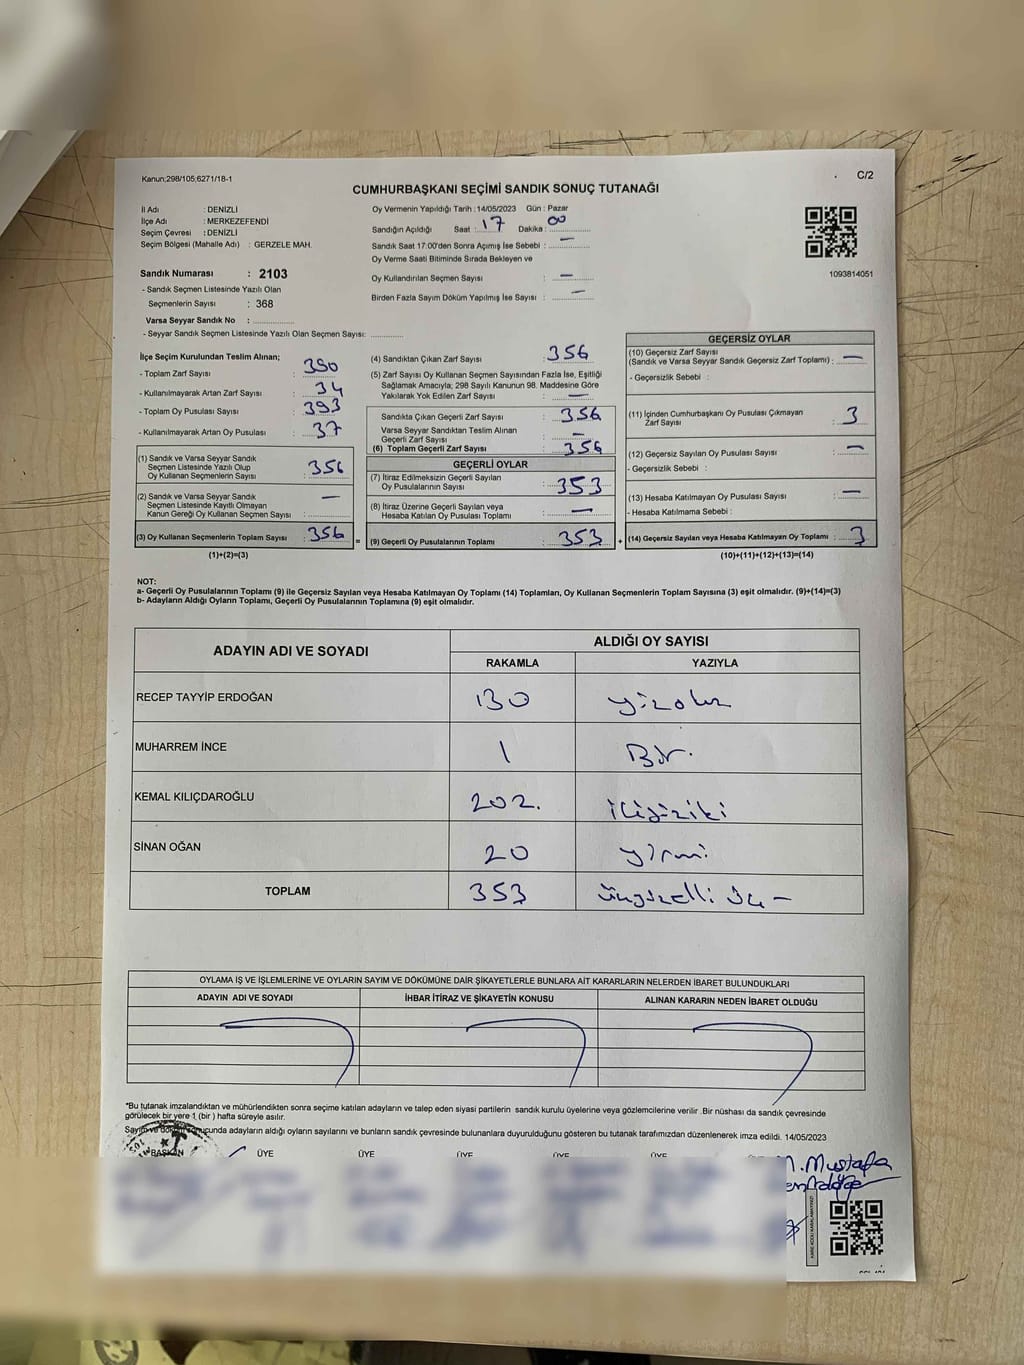 Kanun;298/105;6271/18-1
C/2
CUMHURBAŞKANI SEÇİMİ SANDIK SONUÇ TUTANAĞI
İl Adı : DENİZLİ
İlçe Adı : MERKEZEFENDİ
Seçim Çevresi : DENİZLİ
Seçim Bölgesi (Mahalle Adı) : GERZELE MAH.
Sandık Numarası : 2103
- Sandık Seçmen Listesinde Yazılı Olan
Seçmenlerin Sayısı : 368
Varsa Seyyar Sandık No :
- Seyyar Sandık Seçmen Listesinde Yazılı Olan Seçmen Sayısı:
Oy Vermenin Yapıldığı Tarih : 14/05/2023 Gün : Pazar
Sandığın Açıldığı Saat : 17 Dakika : 00
Sandık Saat 17:00'den Sonra Açımış İse Sebebi : —
Oy Verme Saati Bitiminde Sırada Bekleyen ve
Oy Kullandırılan Seçmen Sayısı : —
Birden Fazla Sayım Döküm Yapılmış İse Sayısı : —
1093814051
İlçe Seçim Kurulundan Teslim Alınan;
- Toplam Zarf Sayısı : 390
- Kullanılmayarak Artan Zarf Sayısı : 34
- Toplam Oy Pusulası Sayısı : 393
- Kullanılmayarak Artan Oy Pusulası : 37
(1) Sandık ve Varsa Seyyar Sandık
Seçmen Listesinde Yazılı Olup
Oy Kullanan Seçmenlerin Sayısı : 356
(2) Sandık ve Varsa Seyyar Sandık
Seçmen Listesinde Kayıtlı Olmayan
Kanun Gereği Oy Kullanan Seçmen Sayısı : —
(3) Oy Kullanan Seçmenlerin Toplam Sayısı : 356
(1)+(2)=(3)
(4) Sandıktan Çıkan Zarf Sayısı : 356
(5) Zarf Sayısı Oy Kullanan Seçmen Sayısından Fazla İse, Eşitliği
Sağlamak Amacıyla; 298 Sayılı Kanunun 98. Maddesine Göre
Yakılarak Yok Edilen Zarf Sayısı : —
Sandıkta Çıkan Geçerli Zarf Sayısı : 356
Varsa Seyyar Sandıktan Teslim Alınan
Geçerli Zarf Sayısı : —
(6) Toplam Geçerli Zarf Sayısı : 356
GEÇERLİ OYLAR
(7) İtiraz Edilmeksizin Geçerli Sayılan
Oy Pusulalarının Sayısı : 353
(8) İtiraz Üzerine Geçerli Sayılan veya
Hesaba Katılan Oy Pusulası Toplamı : —
= (9) Geçerli Oy Pusulalarının Toplamı : 353
GEÇERSİZ OYLAR
(10) Geçersiz Zarf Sayısı
(Sandık ve Varsa Seyyar Sandık Geçersiz Zarf Toplamı) : —
- Geçersizlik Sebebi :
(11) İçinden Cumhurbaşkanı Oy Pusulası Çıkmayan
Zarf Sayısı : 3
(12) Geçersiz Sayılan Oy Pusulası Sayısı : —
- Geçersizlik Sebebi :
(13) Hesaba Katılmayan Oy Pusulası Sayısı : —
- Hesaba Katılmama Sebebi :
+ (14) Geçersiz Sayılan veya Hesaba Katılmayan Oy Toplamı : 3
(10)+(11)+(12)+(13)=(14)
NOT:
a- Geçerli Oy Pusulalarının Toplamı (9) ile Geçersiz Sayılan veya Hesaba Katılmayan Oy Toplamı (14) Toplamları, Oy Kullanan Seçmenlerin Toplam Sayısına (3) eşit olmalıdır. (9)+(14)=(3)
b- Adayların Aldığı Oyların Toplamı, Geçerli Oy Pusulalarının Toplamına (9) eşit olmalıdır.
ADAYIN ADI VE SOYADI ALDIĞI OY SAYISI
RAKAMLA YAZIYLA
RECEP TAYYİP ERDOĞAN 130 yüzotuz
MUHARREM İNCE 1 Bir.
KEMAL KILIÇDAROĞLU 202. ikiyüziki
SİNAN OĞAN 20 yirmi
TOPLAM 353 üçyüzelli üç —
OYLAMA İŞ VE İŞLEMLERİNE VE OYLARIN SAYIM VE DÖKÜMÜNE DAİR ŞİKAYETLERLE BUNLARA AİT KARARLARIN NELERDEN İBARET BULUNDUKLARI
ADAYIN ADI VE SOYADI İHBAR İTİRAZ VE ŞİKAYETİN KONUSU ALINAN KARARIN NEDEN İBARET OLDUĞU
*Bu tutanak imzalandıktan ve mühürlendikten sonra seçime katılan adayların ve talep eden siyasi partilerin sandık kurulu üyelerine veya gözlemcilerine verilir .Bir nüshası da sandık çevresinde
görülecek bir yere 1 (bir ) hafta süreyle asılır.
Sayım ve döküm sonucunda adayların aldığı oyların sayılarını ve bunların sandık çevresinde bulunanlara duyurulduğunu gösteren bu tutanak tarafımızdan düzenlenerek imza edildi. 14/05/2023
BAŞKAN ÜYE ÜYE ÜYE ÜYE ÜYE
M.Mustafa